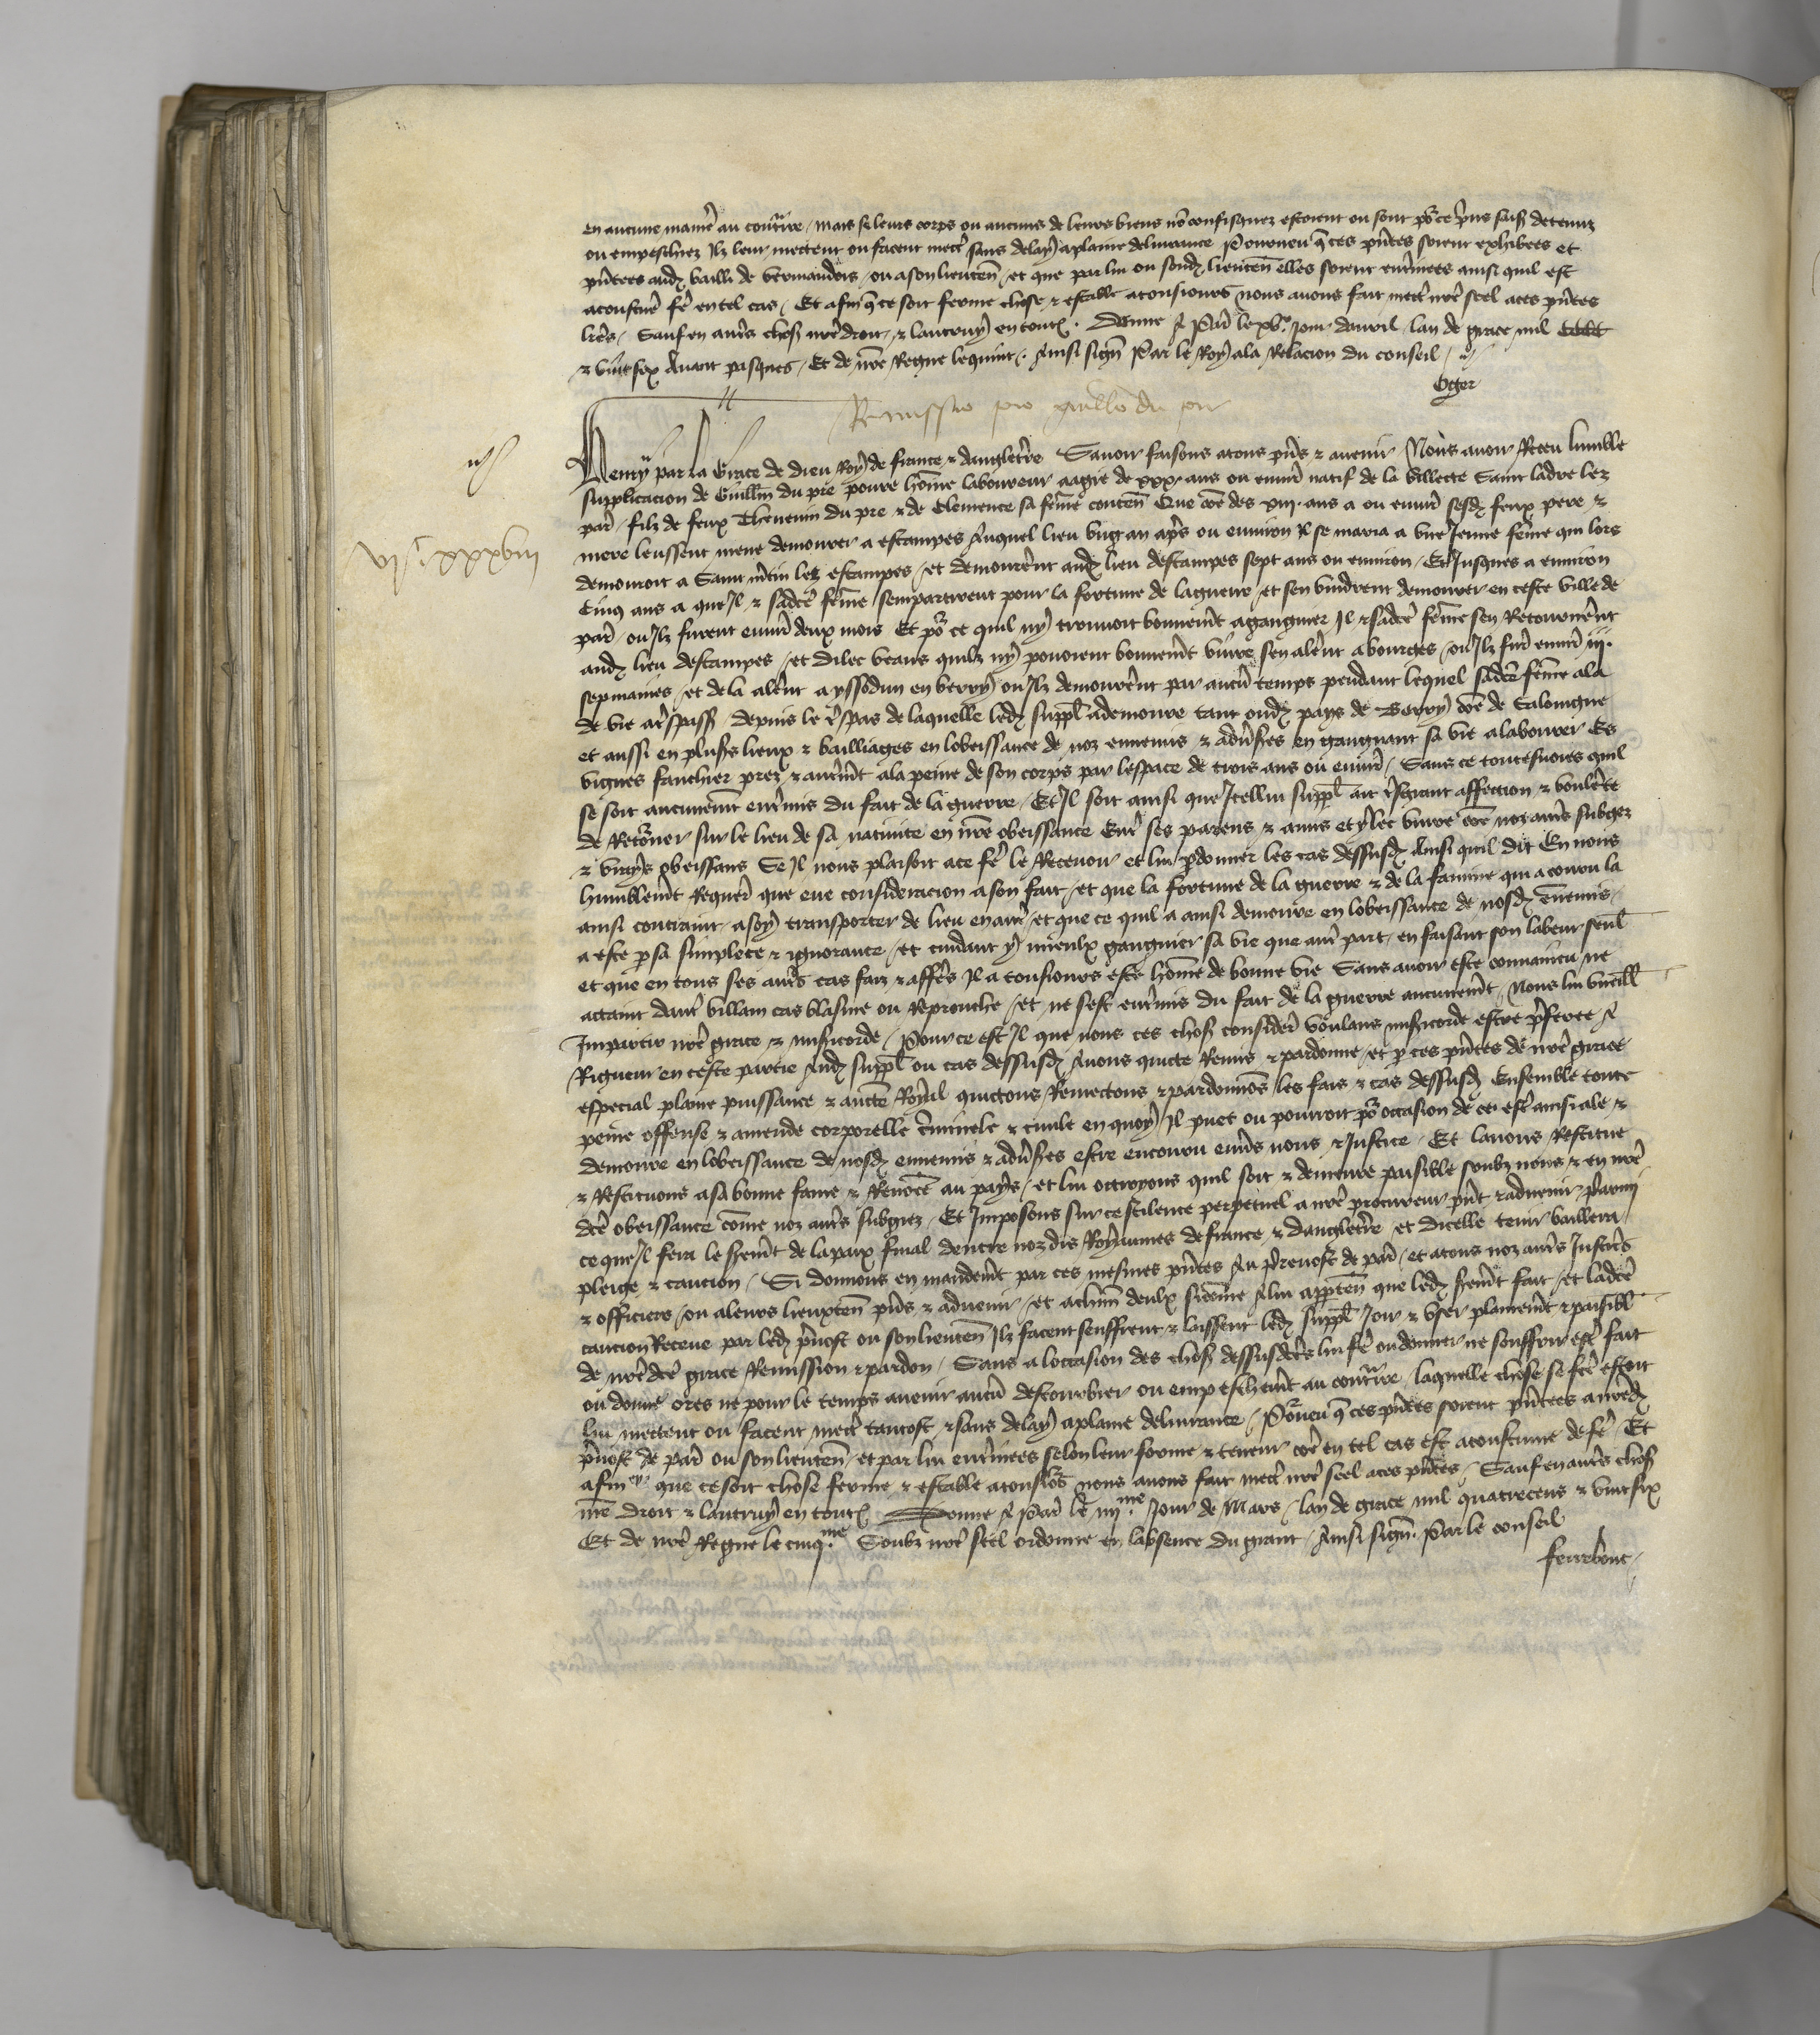 en aucune manie͛ au cont͛ire / mais se leurs corps ou aucuns de leurs biens nō confisquez estoient ou sont po͛ ce p͛ns saisiz detenuz
ou empeschiez Ilz leur mettent ou facent mett͛ sans delay a plaine deliurance Pourueu q̄ ces p͛ntes soient exhibees et
p͛ntees aud͛ bailli de Vermandois / ou a son lieuten̄ / et que par lui ou sond͛ lieuten̄ elles soient ent͛inees ainsi quil est
acoustu͛e fe͛ en tel cas / Et afin q̄ ce soit ferme chose & estable a tousiours nous auons fait mett͛ nr̄e seel a ces p͛ntes
lr̄es / Sauf en aut͛s choses nr̄e droit / & lautruy en toutes . Donne a Par͛ le xve jour dauril / lan de grace mil
& vint six Auant pasques / Et de nr̄e Regne le quint / Ainsi sign̄ Par le Roy a la Relacion du conseil /
Oger
Remissio pro guill͛o du pre
Henry par la Grace de dieu Roy de france & dangletr̄e Sauoir faisons a tous p͛ns & auenir Nous auoir Receu lumble
supplicacion de Guillm̄ du pre poure hom̄e laboureur aagie de xxx ans ou enuir͛ natif de la Villecte Saint ladre lez
par͛ / filz de feux Theuenin du pre & de Clemence sa fem̄e conten̄ Que com̄e des xiij ans a ou enuir͛ sesd͛ feux pere &
mere leussent mene demourer a estampes Auquel lieu vng an ap͛s ou enuiron Il se maria a vne Jeune fem̄e qui lors
demouroit a Saint m͛tin lez estampes / et demoure͛nt aud͛ lieu destampes sept ans ou enuiron / Et Jusques a enuiron
Cinq ans a que Il & sadce͛ fem̄e sempartirent pour la fortune de la guerre / et sen vindrent demourer en ceste ville de
par͛ / ou Ilz furent enuir͛ deux mois Et po͛ ce quil ny trouuoit bonnem̄t a gangnier Il & sadce͛ fem̄e sen Retourne͛nt
aud͛ lieu destampes / et dilec veans quilz ny pouoient bonnem̄t viure sen ale͛nt a bourges / ou Ilz fur͛ enuir͛ iij.
sepmaines / et de la ale͛nt a yssodun en berry ou Ilz demoure͛nt par aucū temps pendant lequel sadce͛ fem̄e ala
de vie a t͛spass͛ / depuis le t͛spas de laquelle led͛ suppl͛ a demoure tant oud͛ pays de Berry com̄e de Saloingne
et aussi en plus͛s lieux & bailliages en lobeissance de noz ennemis & adu͛s͛es en gangnant sa vie a labourer Es
vignes fauchier prez & aut͛m̄t a la peine de son corps par lespace de trois ans ou enuir͛ / Sans ce toutesuoies quil
se soit aucunem̄t ent͛mis du fait de la guerre / Et Il soit ainsi que Icellui suppl͛ ait t͛sgrant affection & voulente͛
de Reto͛ner sur le lieu de sa natiuite en nr̄e obeissance Ent͛ ses parens & amis et ylec viure com̄e noz aut͛s subgez
& vrays obeissans Se Il nous plaisoit a ce fe͛ le Receuoir et lui p͛donner les cas dessusd͛ Ainsi quil dit En nous
humblem̄t Requer͛ que eue consideracion a son fait / et que la fortune de la guerre & de la famine qui a couru la
ainsi contraint / a soy transporter de lieu en aut͛ / et que ce quil a ainsi demoure en lobeissance de nosd͛ en̄emis /
a este p͛ sa simplece & ignorance / et cuidant y mieulx gangnier sa vie que aut͛ part / en faisant son labeur seul͛
et que en tous ses aut͛s cas faiz & affe͛s Il a tousiours este hom̄e de bonne vie Sans auoir este conuaincu ne
actaint daut͛ villain cas blasme ou Reprouche / et ne sest ent͛mis du fait de la guerre aucunem̄t / Nous lui vueill͛
Impartir nr̄e grace & mis͛icorde / Pour ce est Il que nous ces choses consider͛ voulans mis͛icorde estre p͛feree a
Rigueur en ceste partie Aud͛ suppl͛ ou cas dessusd͛ Auons quicte Remis & pardonne / et p͛ ces p͛ntes de nr̄e grace
especial plaine puissance & aucte͛ Royal quictons Remectons & pardonnōs les fais & cas dessusd͛ Ensemble toute
peine offense & amende corporelle c͛minele & ciuile en quoy Il puet ou pourroit po͛ occasion de ce est͛ ainsi ale &
demoure en lobeissance de nosd͛ ennemis & adu͛s͛es estre encouru enu͛s nous & Justice / Et lauons Restitue
& Restituons a sa bonne fame & Renōee au pays / et lui octroyons quil soit & demeure paisible soubz nous & en nr̄e
dce͛ obeissance com̄e noz aut͛s subgiez / Et Imposons sur ce scilence perpetuel a nr̄e procureur p͛nt & aduenir / Parmi
ce que Il fera le s͛em̄t de la paix final dentre noz dis Royaumes de france & dangletr̄e et dicelle tenir baillera
pleige & caucion / Si donnons en mandem̄t par ces mesmes p͛ntes Au Preuost de par͛ / et a tous noz aut͛s Justic͛s
& officiers / ou a leurs lieuxten̄ p͛ns & aduenir / et a chūn deulx sicom̄e a lui apparten̄ que led͛ s͛em̄t fait / et ladce͛
caucion Receue par led͛ p͛uost ou son lieuten̄ Ilz facent seuffrent & laissent led͛ suppl͛ Joir & vser plainem̄t & paisibl͛
de nr̄e dce͛ grace Remission & pardon / Sans a loccasion des choses dessusdce͛s lui fe͛ ou donner ne souffrir est͛ fait
ou donne ores ne pour le temps auenir aucū destourbier ou empeschem̄t au cont͛ire / laquelle chose se fce͛ estoit
lui mettent ou facent mett͛ tantost & sans delay a plaine deliurance / Po͛ueu q̄ ces p͛ntes soient p͛ntees a nr̄ed͛
p͛uost de par͛ ou son lieuten̄ / et par lui ent͛inees selon leur forme & teneur com̄e en tel cas est acoustume de fe͛ / Et
afin que ce soit chose ferme & estable a tousio͛s nous auons fait mett͛ nr̄e seel a ces p͛ntes / Sauf en aut͛s choses
nr̄e droit & lautruy en toutes Donne a Par͛ le iiij.me Jour de Mars / lan de grace mil quatrecens & vint six
Et de nr̄e Regne le cinq.me Soubz nr̄e seel ordonne en labsence du grant / Ainsi sign̄. Par le conseil
ferrebouc